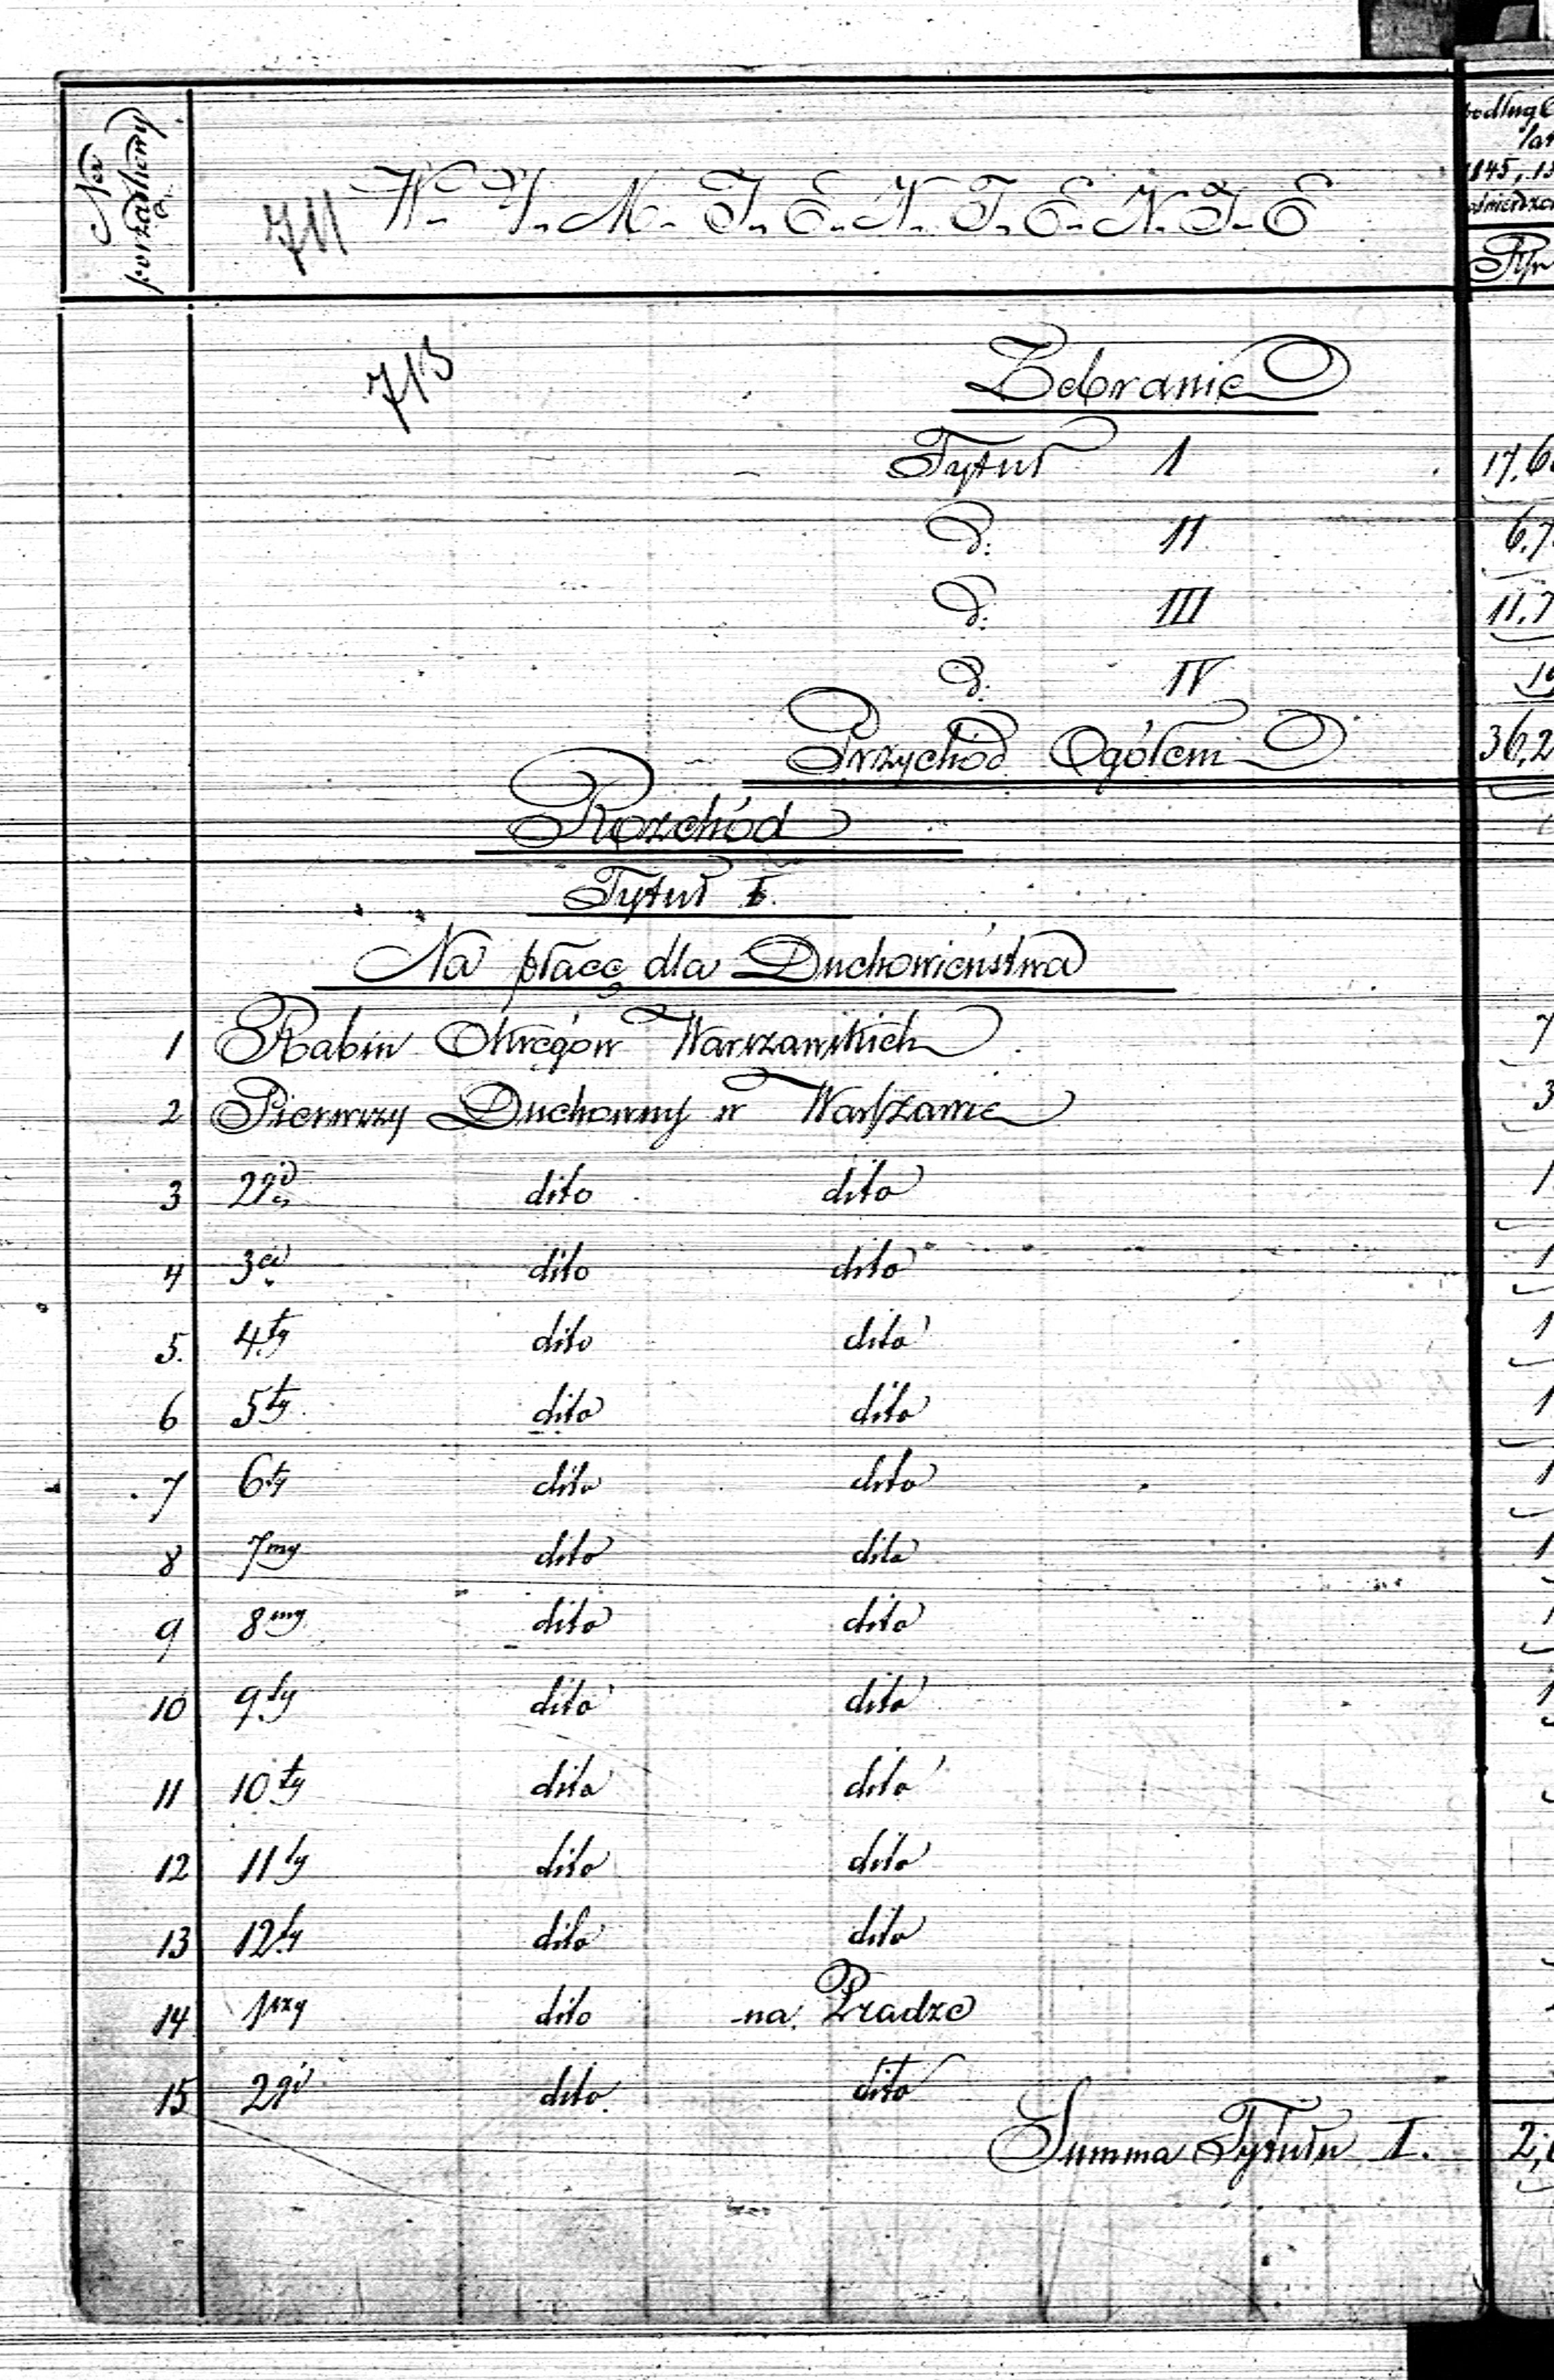 Ner porządkowy
711 W.Y.M.I.E.N.I.E.N.I.E
1845
713
Zebranie
Tytuł I 17,6
d: II 6,7
d: III 11,7
d: IV 19
Przychód Ogółem 36,2
Rozchód
Tytuł I.
Na płacę dla Duchowieństwa
1 Rabin Okręgów Warszawskich 7
2 Pierwszy Duchowny w Warszawie 3
3 2gi dito dito 1
4 3ci dito dito 1
5. 4ty dito dito 1
6 5ty dito dito 1
7 6ty dito dito 1
8 7my dito dito 1
9 8my dito dito 1
10 9ty dito dito 1
11 10ty dito dito
12 11ty dito dito
13 12ty dito dito
14 1szy dito na Pradze
15 2gi dito dito
Summa Tytułu I. 2,